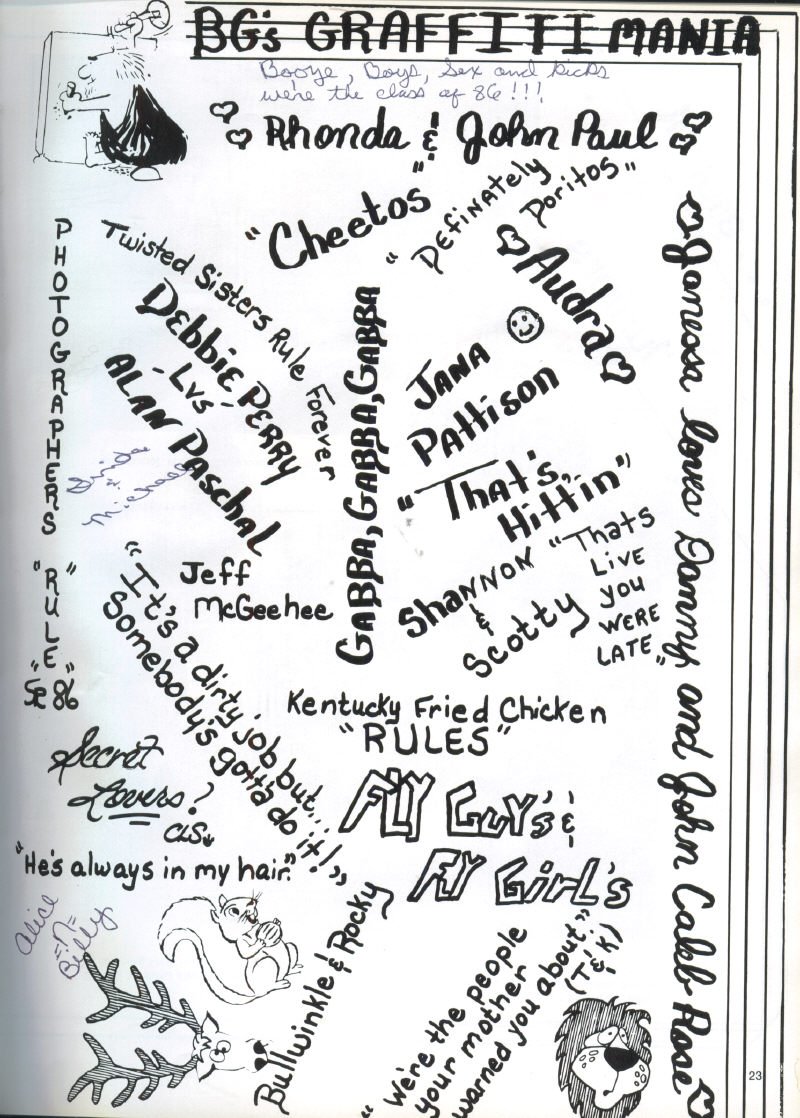 BG's GRAFFITI MANIA
Booze, Boys, Sex and kicks
we're the class of 86!!!
Rhonda & John Paul
"Cheetos"
"Definately
Doritos"
Audra
Janessa loves Dammy and John Caleb Rose
PHOTOGRAPHERS
"RULE"
Sr 86
Twisted Sisters Rule Forever
DEbbiE PERRY
-Lvs-
ALAN PaschaL
GABBA, GABBA, GABBA
JANA
Pattison
"That's
Hittin"
Linda
&
Michael
Jeff
McGeehee
ShaNNON
&
Scotty
"Thats
LIVE
you
WERE
LATE"
"It's a dirty job but...
Somebody's gotta do it!"
Kentucky Fried Chicken
"RULES"
Secret
Lovers?
CLS
FLY GUY'S &
FLY GirL's
"He's always in my hair."
Alice
=n=
Billy
Bullwinkle & Rocky
"We're the people
your mother
warned you about."
(T & K)
23